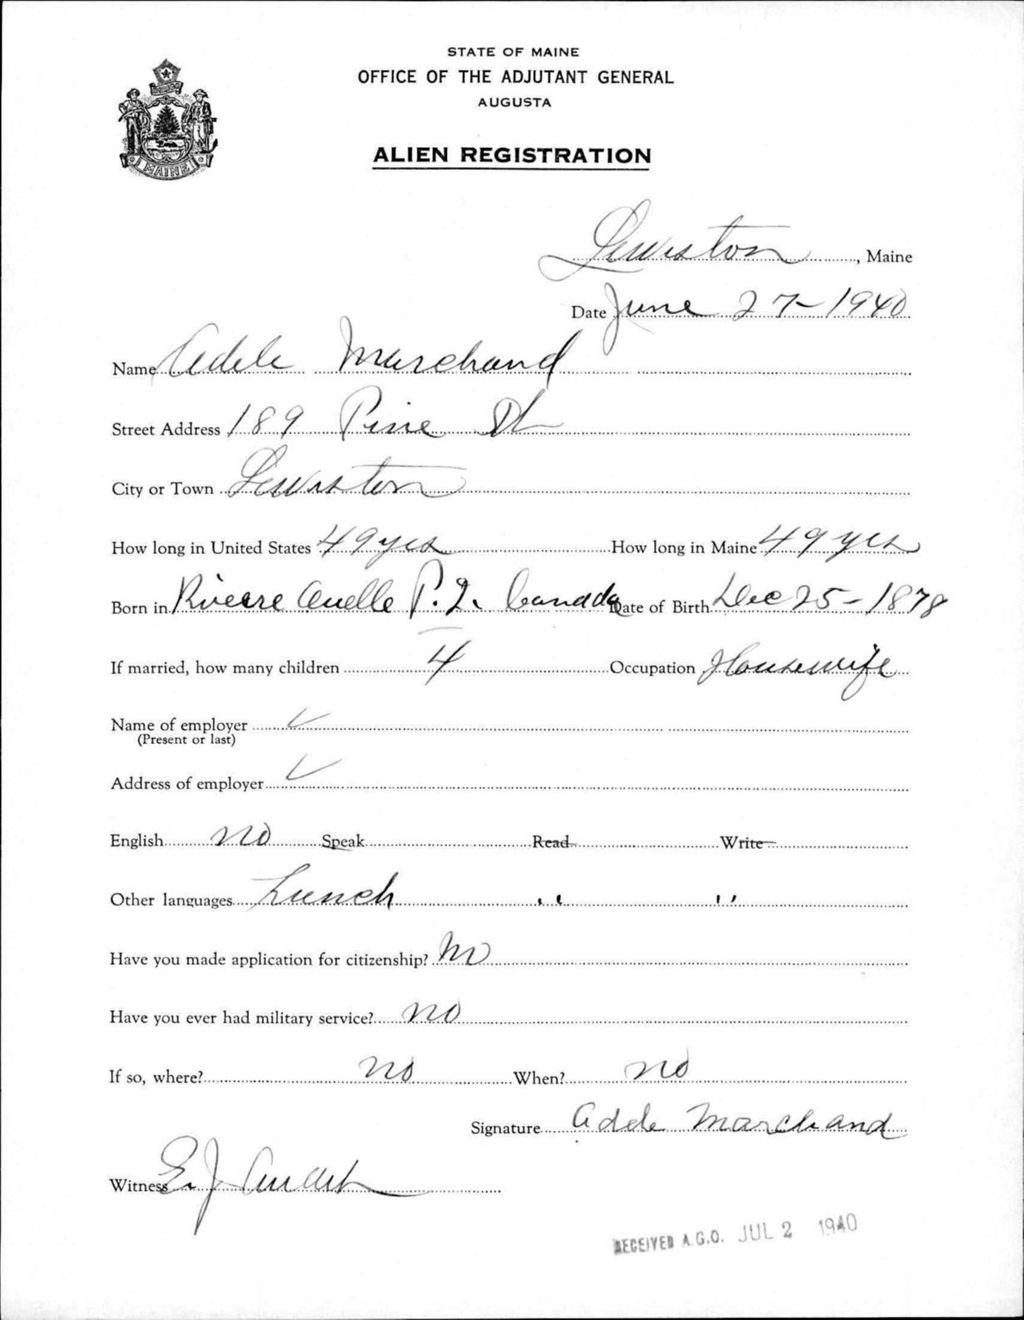 STATE OF MAINE
OFFICE OF THE ADJUTANT GENERAL
AUGUSTA
ALIEN REGISTRATION
MAINE
Lewiston, Maine
Date June 27-1940
Name Adele Marchand
Street Address 189 Pine St
City or Town Lewiston
How long in United States 49 yrs How long in Maine 49 yrs
Born in Riviere Ouelle P.Q. Canada Date of Birth Dec 25-1878
If married, how many children 4 Occupation Housewife
Name of employer ✓
(Present or last)
Address of employer ✓
English no Speak Read Write
Other languages French " "
Have you made application for citizenship? No
Have you ever had military service? no
If so, where? no When? no
Signature Adele Marchand
Witness E. J.
RECEIVED A.G.O. JUL 2 1940